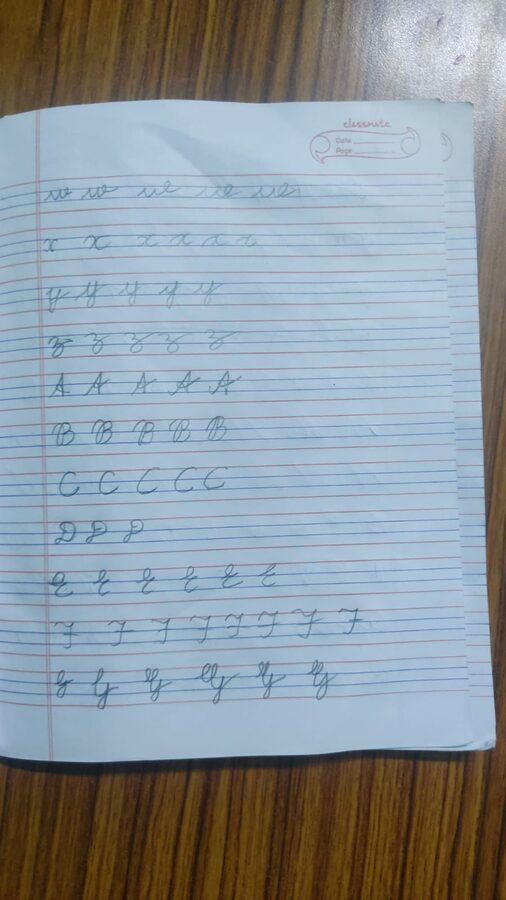 classmate
Date
Page
w w w w w
x x x x x x
y y y y y
z z z z z
A A A A A
B B B B B
C C C C C
D D D
E E E E E E
F F F F F F F F
G G G G G G